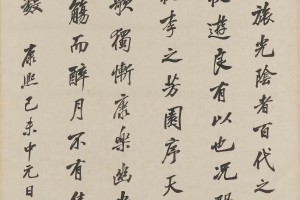 旅光陰者百代之
遊良有以也況陽
李之芳園序天
歌獨慚康樂幽
觴而醉月不有佳
數 康熙己未中元日